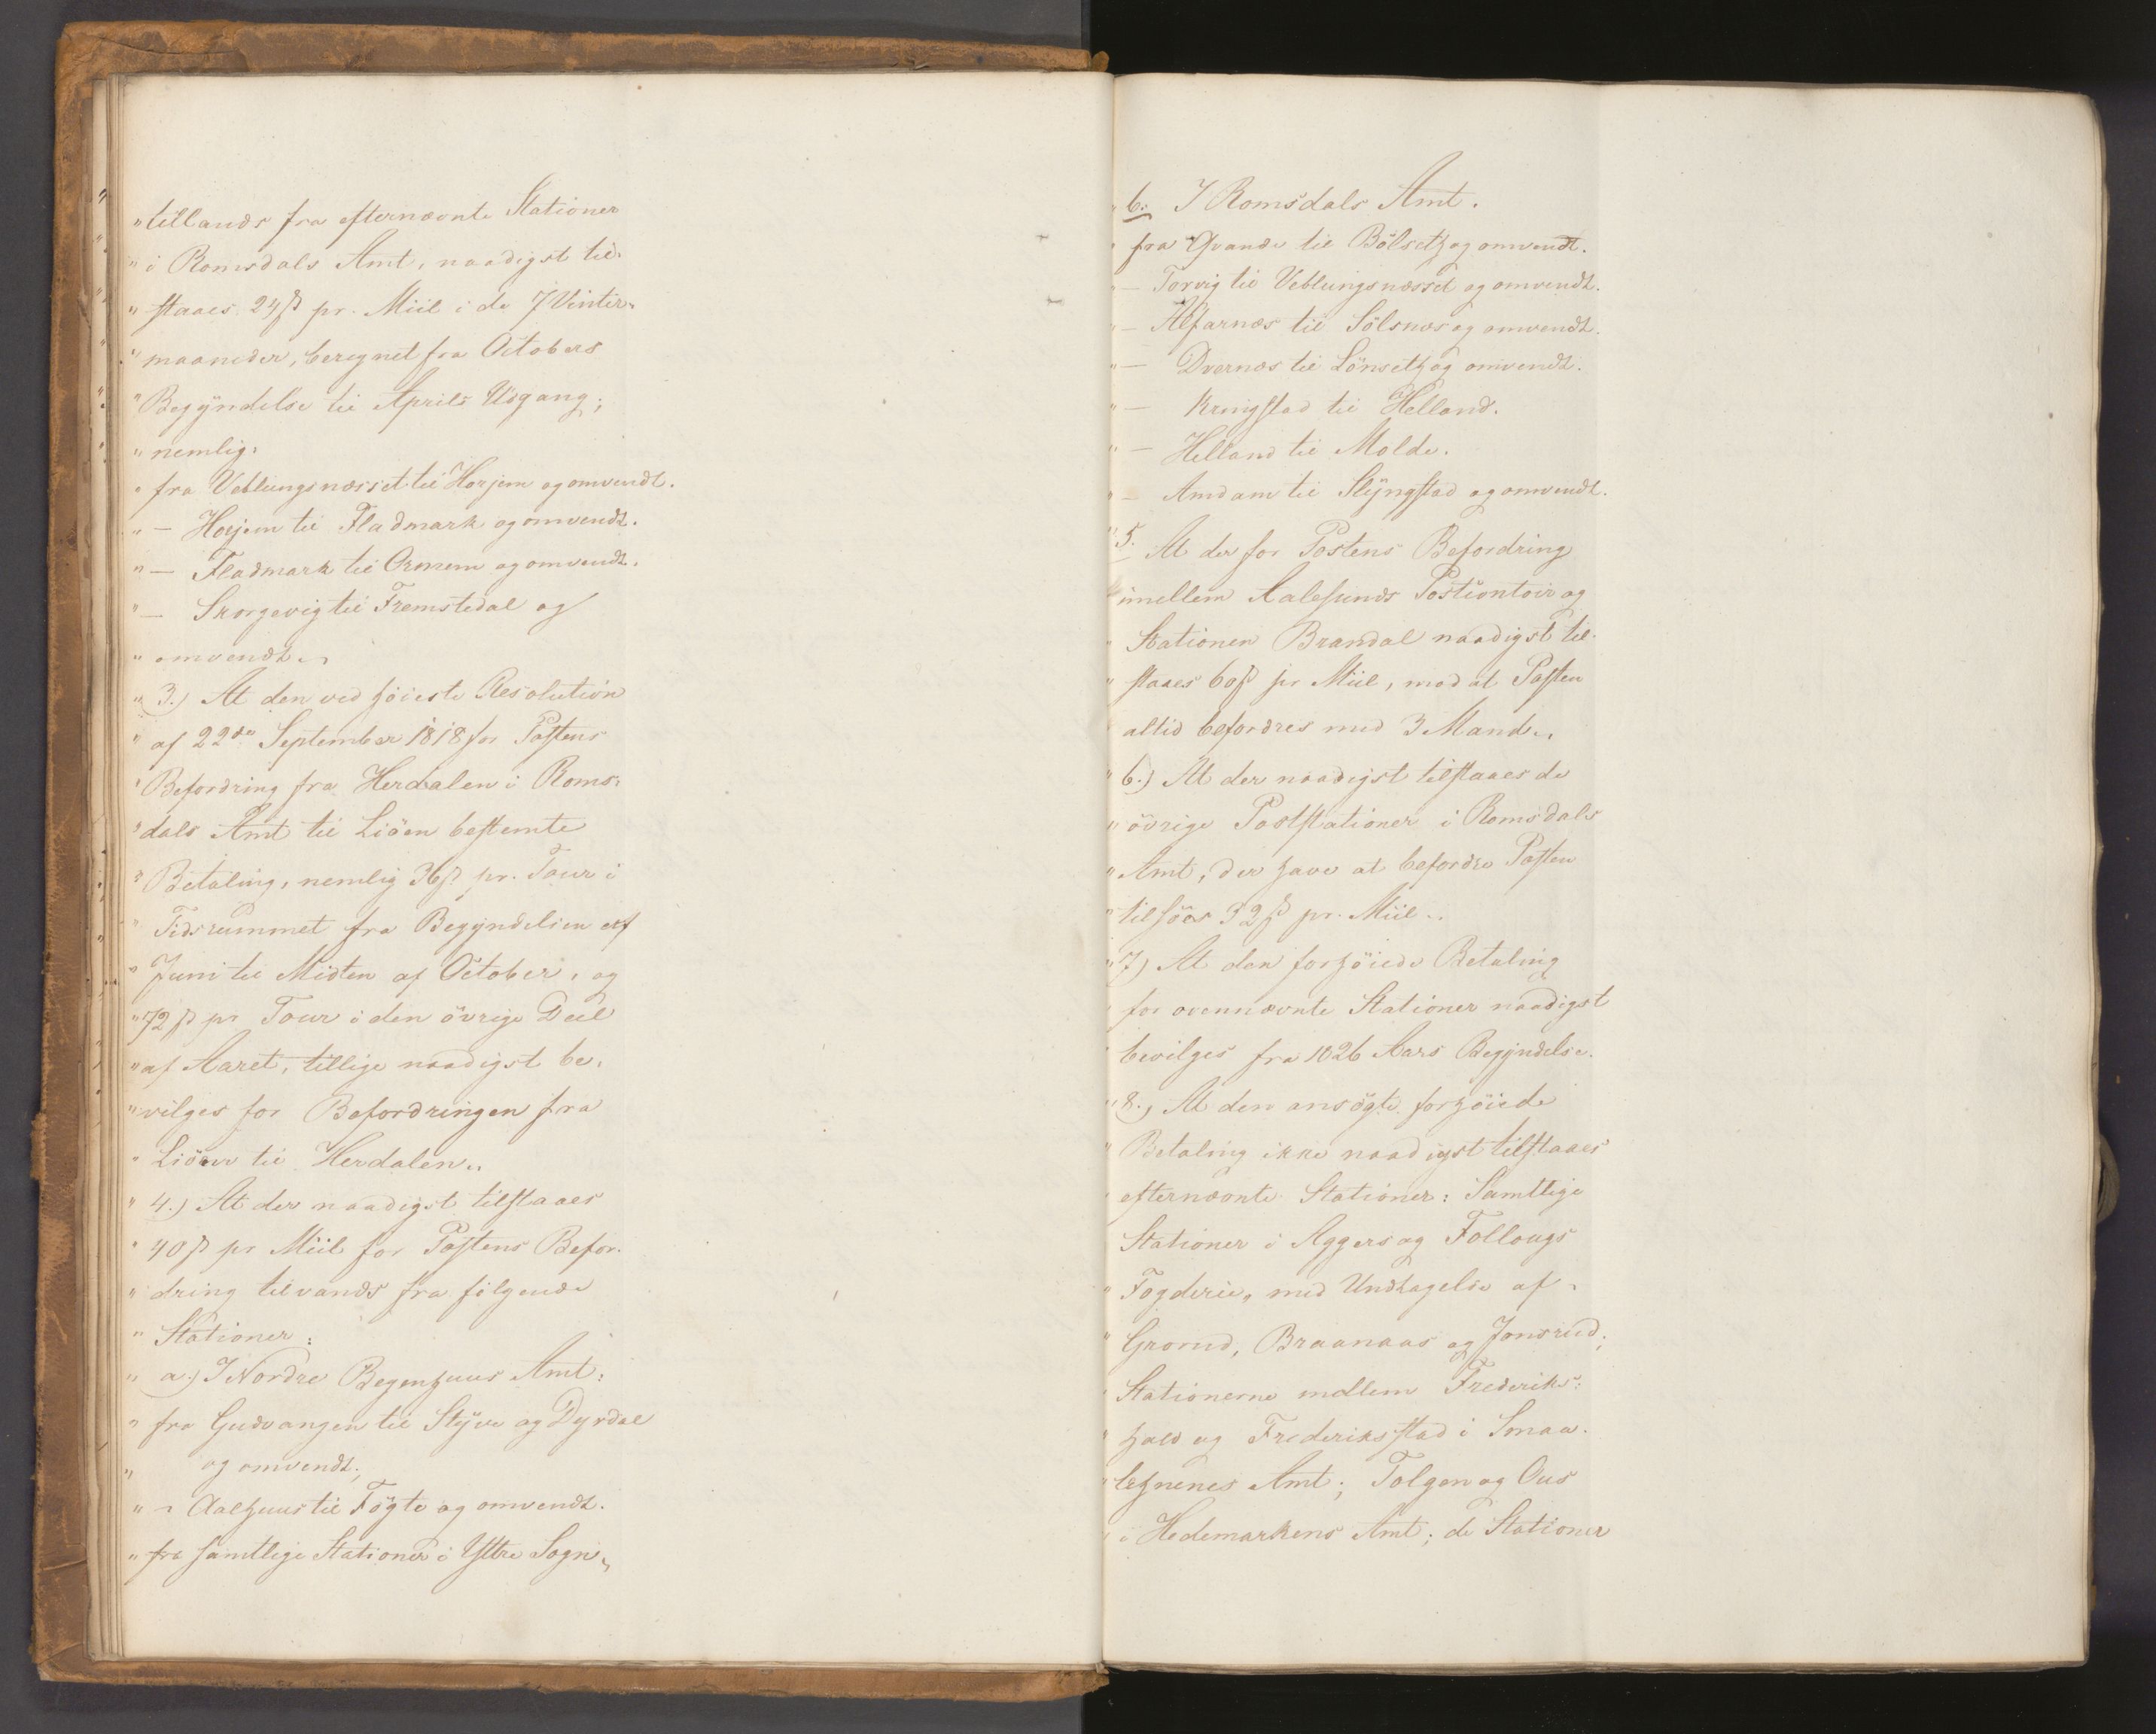 "tillands fra efternævnte Stationer
"i Romsdals Amt, naadigst til-
"staaes 24 ß pr. Miil i de 7 Vinter-
"maaneder, beregnet fra Octobers
"Begyndelse til Aprils Udgang;
"nemlig:
"fra Veblungsnæsset til Horjem og omvendt.
"— Horjem til Fladmark og omvendt.
"— Fladmark til Ormem og omvendt.
"— Skorgevig til Fremstedal og
"omvendt.„
"3.) At den ved höieste Resolution
"af 22de September 1818 for Postens
"Befordring fra Herdalen i Roms-
"dals Amt til Liöen bestemte
"Betaling, nemlig 36 ß pr. Tour i
"Tidsrummet fra Begyndelsen af
"Juni til Midten af October, og
"72 ß pr Tour i den övrige Deel
"af Aaret, tillige naadigst be-
"vilges for Befordringen fra
"Liöen til Herdalen„
"4.) At der naadigst tilstaaes
"40 ß pr Miil for Postens Befor-
"dring tilvands fra fölgende
"Stationer:
"a.) I Nordre Bergenhuus Amt:
"fra Gudvangen til Styve og Dyrdal
"og omvendt;
"— Aalhuus til Fögte og omvendt.
"fra samtlige Stationer i Yttre Sogn„
"b: I Romsdals Amt.
"fra Grande til Bölseth og omvendt.
"— Torvig til Veblungsnæsset og omvendt.
"— Alfarnæs til Sölsnæs og omvendt.
"— Dvernæs til Lönseth og omvendt.
"— Kringstad til Helland.
"— Helland til Molde.
"— Amdam til Slyngstad og omvendt.
"5. At der for Postens Befordring
"imellem Aalesunds Postcontoir og
"Stationen Brandal naadigst til-
"staaes 60 ß pr Miil, mod at Posten
altid befordres med 3 Mand„
"6.) At der naadigst tilstaaes de
"övrige Poststationer i Romsdals
"Amt, der have at befordre Posten
"tilsöes 32 ß pr. Miil..
"7) At den forhöiede Betaling
"for ovennævnte Stationer naadigst
"bevilges fra 1826 Aars Begyndelse.
"8.) At den ansögte forhöiede
"Betaling ikke naadigst tilstaaes
"efternævnte Stationer: Samtlige
Stationer i Aggers og Follougs
"Fogderie, med Undtagelse af
"Grorud, Braanaas og Jonsrud;
"Stationerne mellem Frederiks-
"hald og Frederiksstad i Smaa-
"lehnenes Amt; Tolgen og Ous
"i Hedemarkens Amt; de Stationer